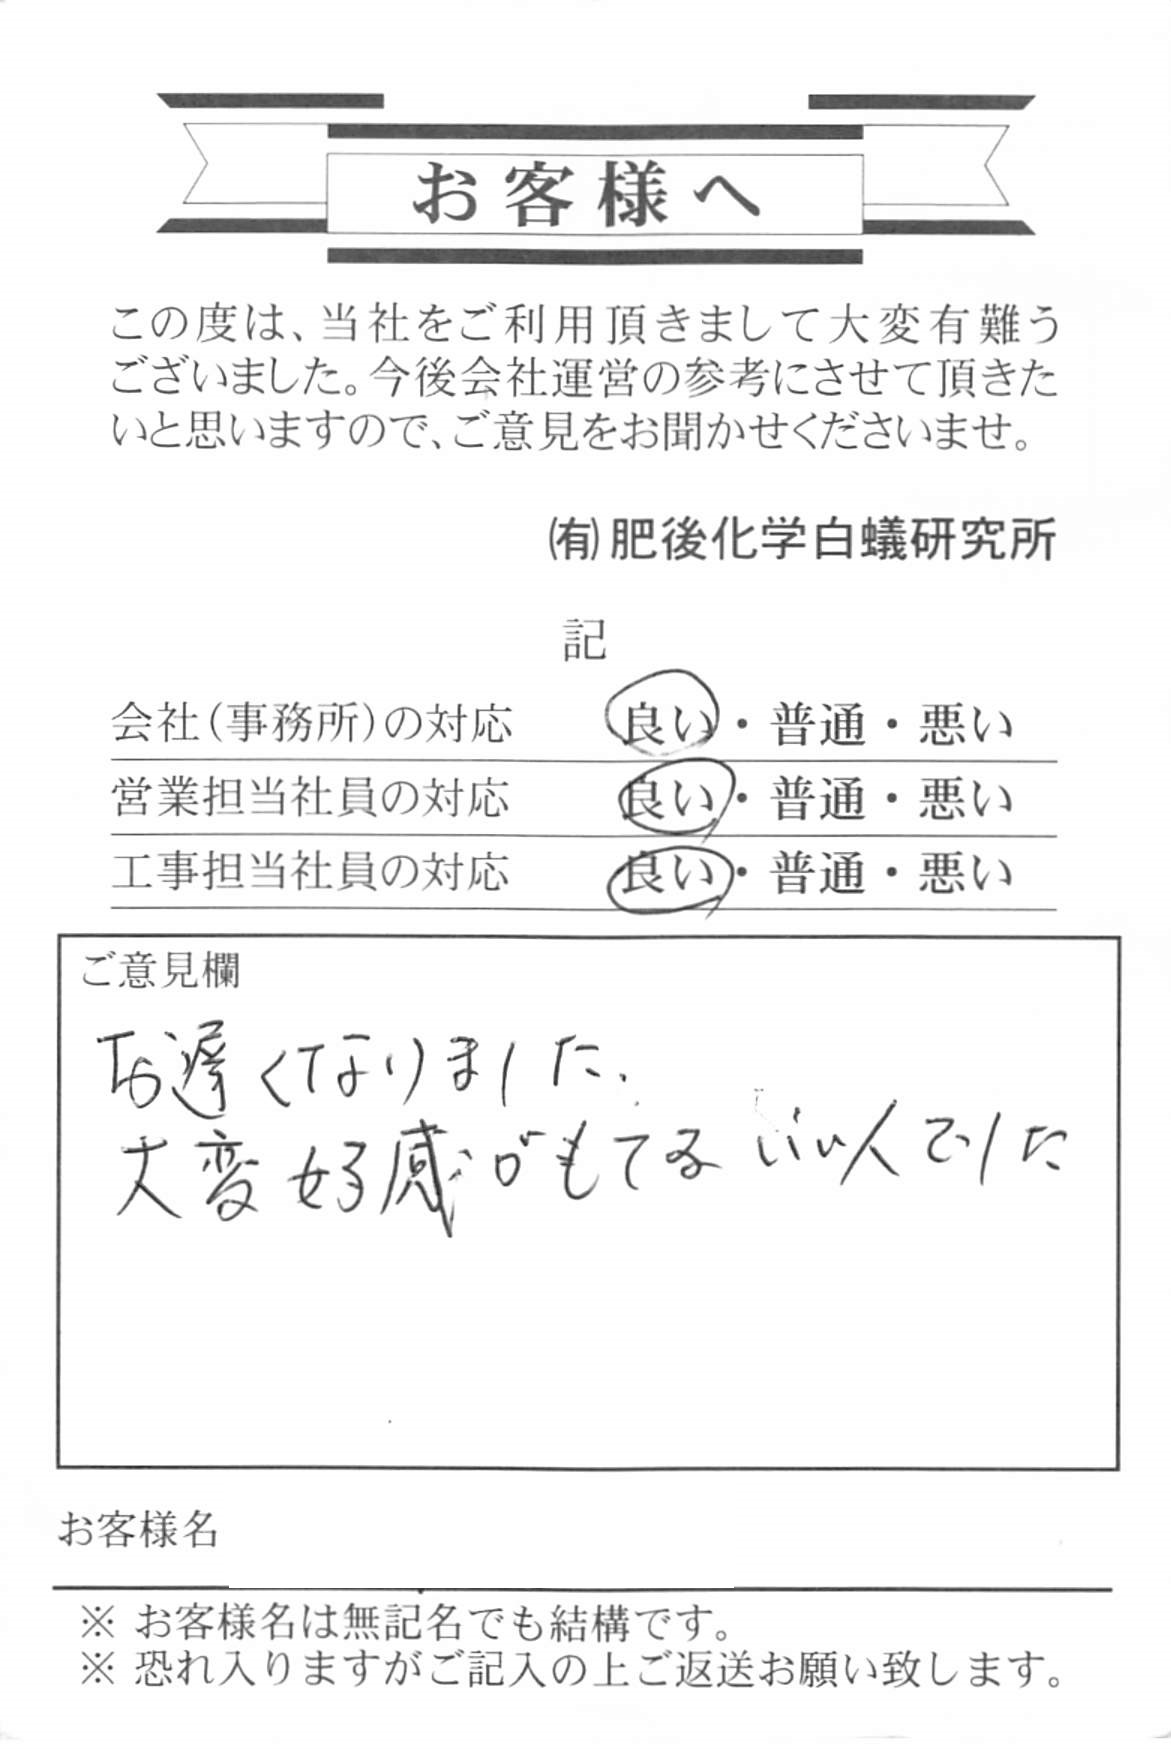 お客様へ
この度は、当社をご利用頂きまして大変有難う
ございました。今後会社運営の参考にさせて頂きた
いと思いますので、ご意見をお聞かせくださいませ。
㈲肥後化学白蟻研究所
記
会社(事務所)の対応 良い・普通・悪い
営業担当社員の対応 良い・普通・悪い
工事担当社員の対応 良い・普通・悪い
ご意見欄
お遅くなりました、
大変好感がもてるいい人でした
お客様名
※ お客様名は無記名でも結構です。
※ 恐れ入りますがご記入の上ご返送お願い致します。